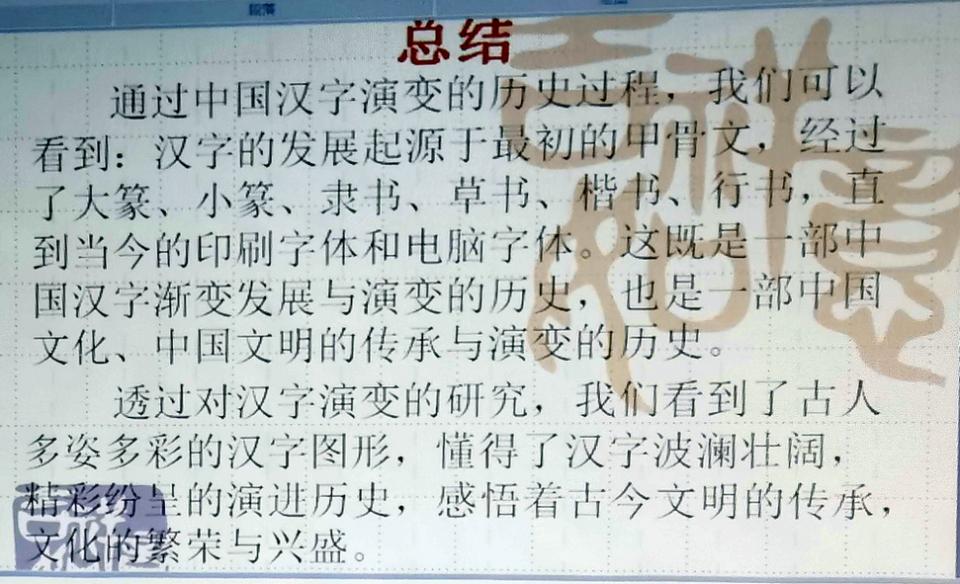 段落
总结
通过中国汉字演变的历史过程，我们可以
看到：汉字的发展起源于最初的甲骨文，经过
了大篆、小篆、隶书、草书、楷书、行书，直
到当今的印刷字体和电脑字体。这既是一部中
国汉字渐变发展与演变的历史，也是一部中国
文化、中国文明的传承与演变的历史。
透过对汉字演变的研究，我们看到了古人
多姿多彩的汉字图形，懂得了汉字波澜壮阔，
精彩纷呈的演进历史，感悟着古今文明的传承，
文化的繁荣与兴盛。